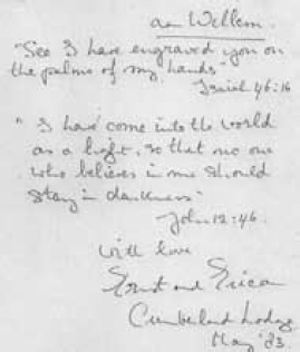 an Willem.
"See I have engraved you on
the palms of my hands"
Isaiah 46:16
"I have come into the world
as a light, so that no one
who believes in me should
stay in darkness"
John 12:46.
with love
Ernst and Erica
Cumberland Lodge
May '83.